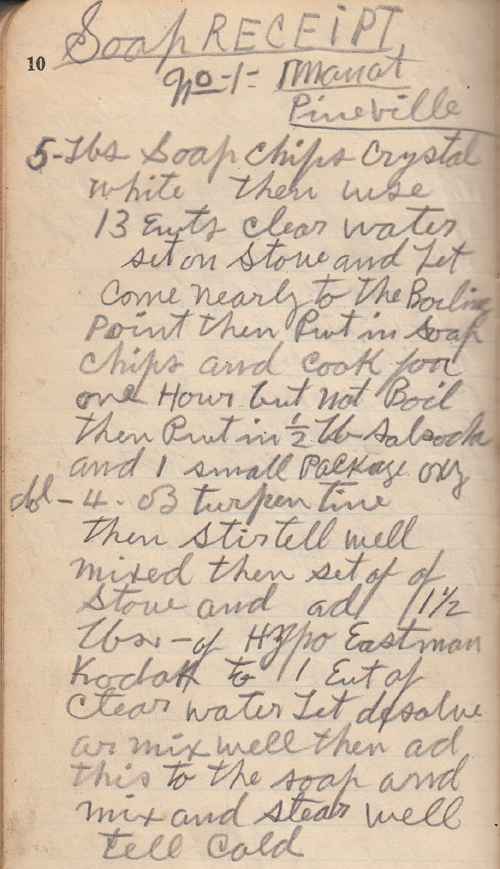 Soap RECEiPT
10
No-1- 
Pineville
5-Lbs Soap chips Crystal
white then use
13 clear water
set on Stove and Let
Come nearly to the Boiling
Point then Put in Soap
chips and cook for
one Hour but not Boil
then Put in ½ Lb Salsoda
and 1 small Package oxy
dol - 4 - oz turpentine
then stir tell well
mixed then set of of
Stove and ad 1½
Lbs - of Hypo Eastman
Kodak to 1 of
Clear water Let desolve
ar mix well then ad
this to the soap and
mix and stear well
tell Cold